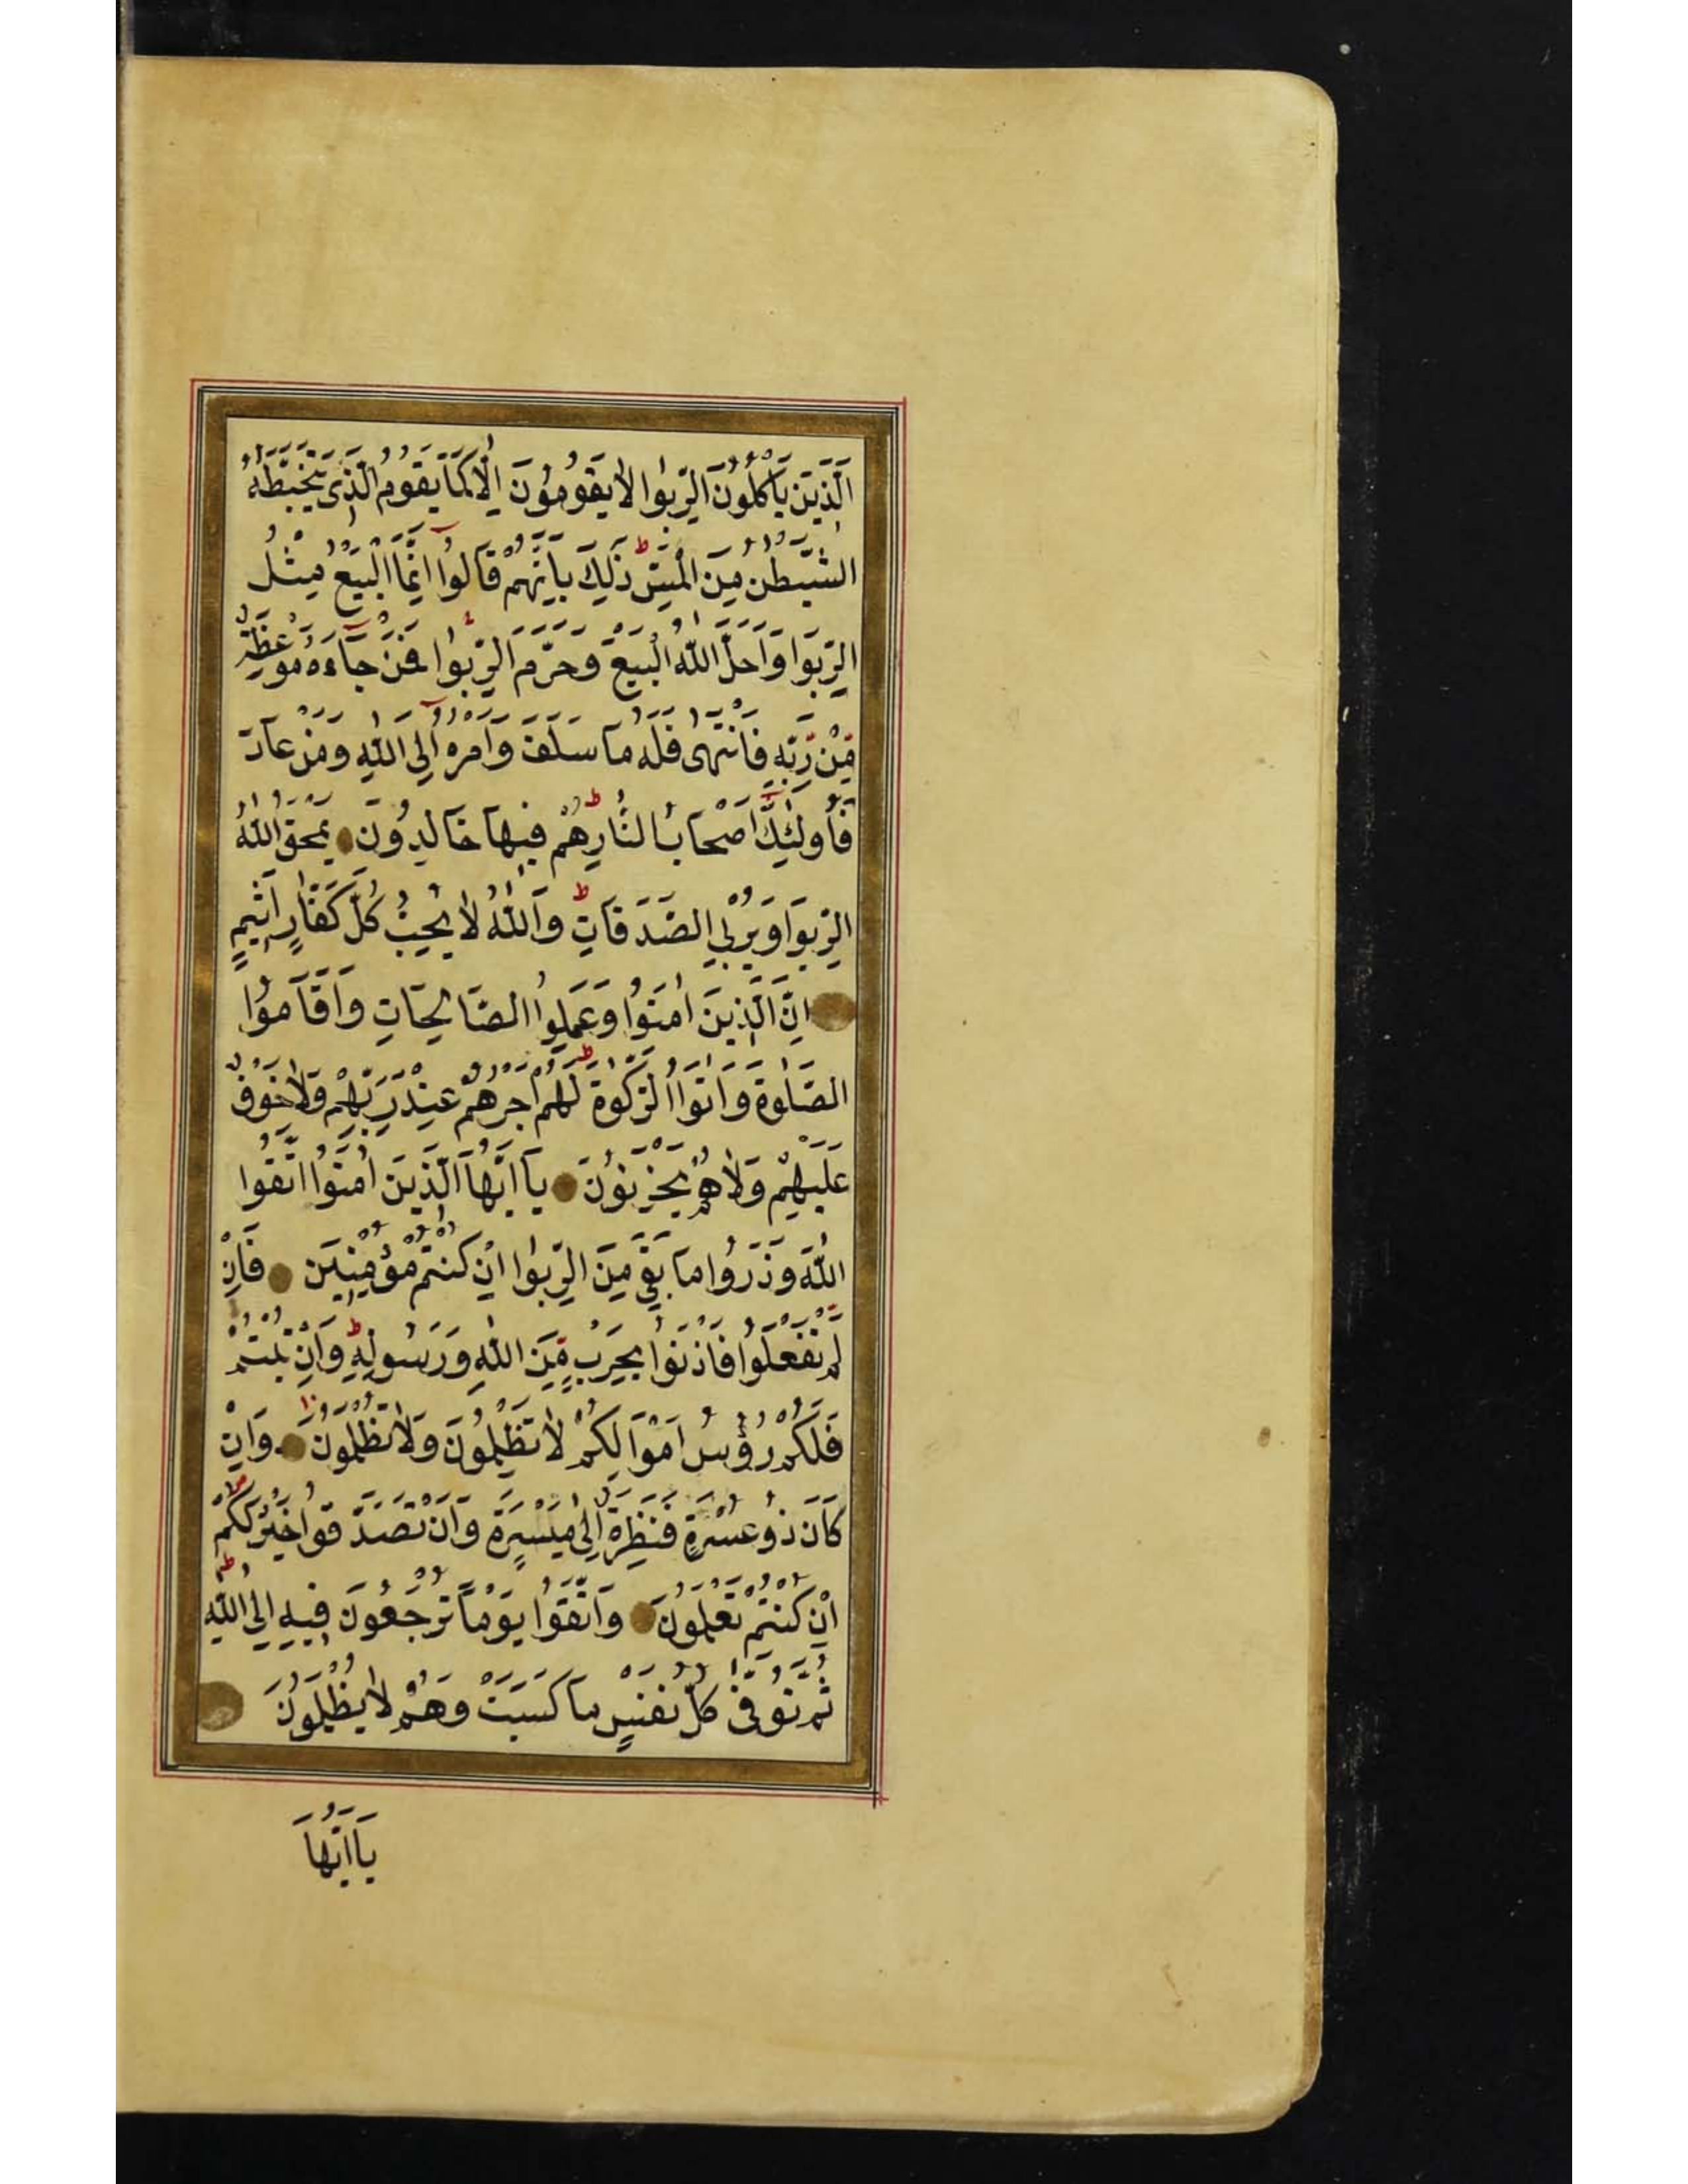 اَلَّذِينَ يَأْكُلُونَ الرِّبٰوا لَا يَقُومُونَ اِلَّا كَمَا يَقُومُ الَّذِى يَتَخَبَّطُهُ
الشَّيْطٰنُ مِنَ الْمَسِّ ط ذٰلِكَ بِاَنَّهُمْ قَالُوا اِنَّمَا الْبَيْعُ مِثْلُ
الرِّبٰوا وَاَحَلَّ اللّٰهُ الْبَيْعَ وَحَرَّمَ الرِّبٰوا فَمَنْ جَآءَهُ مَوْعِظَةٌ
مِنْ رَبِّهِ فَانْتَهٰى فَلَهُ مَا سَلَفَ وَاَمْرُهُ اِلَى اللّٰهِ وَمَنْ عَادَ
فَاُولٰئِكَ اَصْحَابُ النَّارِ ط هُمْ فِيهَا خَالِدُونَ يَمْحَقُ اللّٰهُ
الرِّبٰوا وَيُرْبِى الصَّدَقَاتِ ط وَاللّٰهُ لَا يُحِبُّ كُلَّ كَفَّارٍ اَثِيمٍ
اِنَّ الَّذِينَ اٰمَنُوا وَعَمِلُوا الصَّالِحَاتِ وَاَقَامُوا
الصَّلٰوةَ وَاٰتَوُا الزَّكٰوةَ ط لَهُمْ اَجْرُهُمْ عِنْدَ رَبِّهِمْ وَلَا خَوْفٌ
عَلَيْهِمْ وَلَا هُمْ يَحْزَنُونَ يَا اَيُّهَا الَّذِينَ اٰمَنُوا اتَّقُوا
اللّٰهَ وَذَرُوا مَا بَقِىَ مِنَ الرِّبٰوا اِنْ كُنْتُمْ مُؤْمِنِينَ فَاِنْ
لَمْ تَفْعَلُوا فَأْذَنُوا بِحَرْبٍ مِنَ اللّٰهِ وَرَسُولِهِ ط وَاِنْ تُبْتُمْ
فَلَكُمْ رُؤُسُ اَمْوَالِكُمْ لَا تَظْلِمُونَ وَلَا تُظْلَمُونَ وَاِنْ
كَانَ ذُو عُسْرَةٍ فَنَظِرَةٌ اِلٰى مَيْسَرَةٍ وَاَنْ تَصَدَّقُوا خَيْرٌ لَكُمْ
اِنْ كُنْتُمْ تَعْلَمُونَ وَاتَّقُوا يَوْمًا تُرْجَعُونَ فِيهِ اِلَى اللّٰهِ ط
ثُمَّ تُوَفّٰى كُلُّ نَفْسٍ مَا كَسَبَتْ وَهُمْ لَا يُظْلَمُونَ
يَا اَيُّهَا